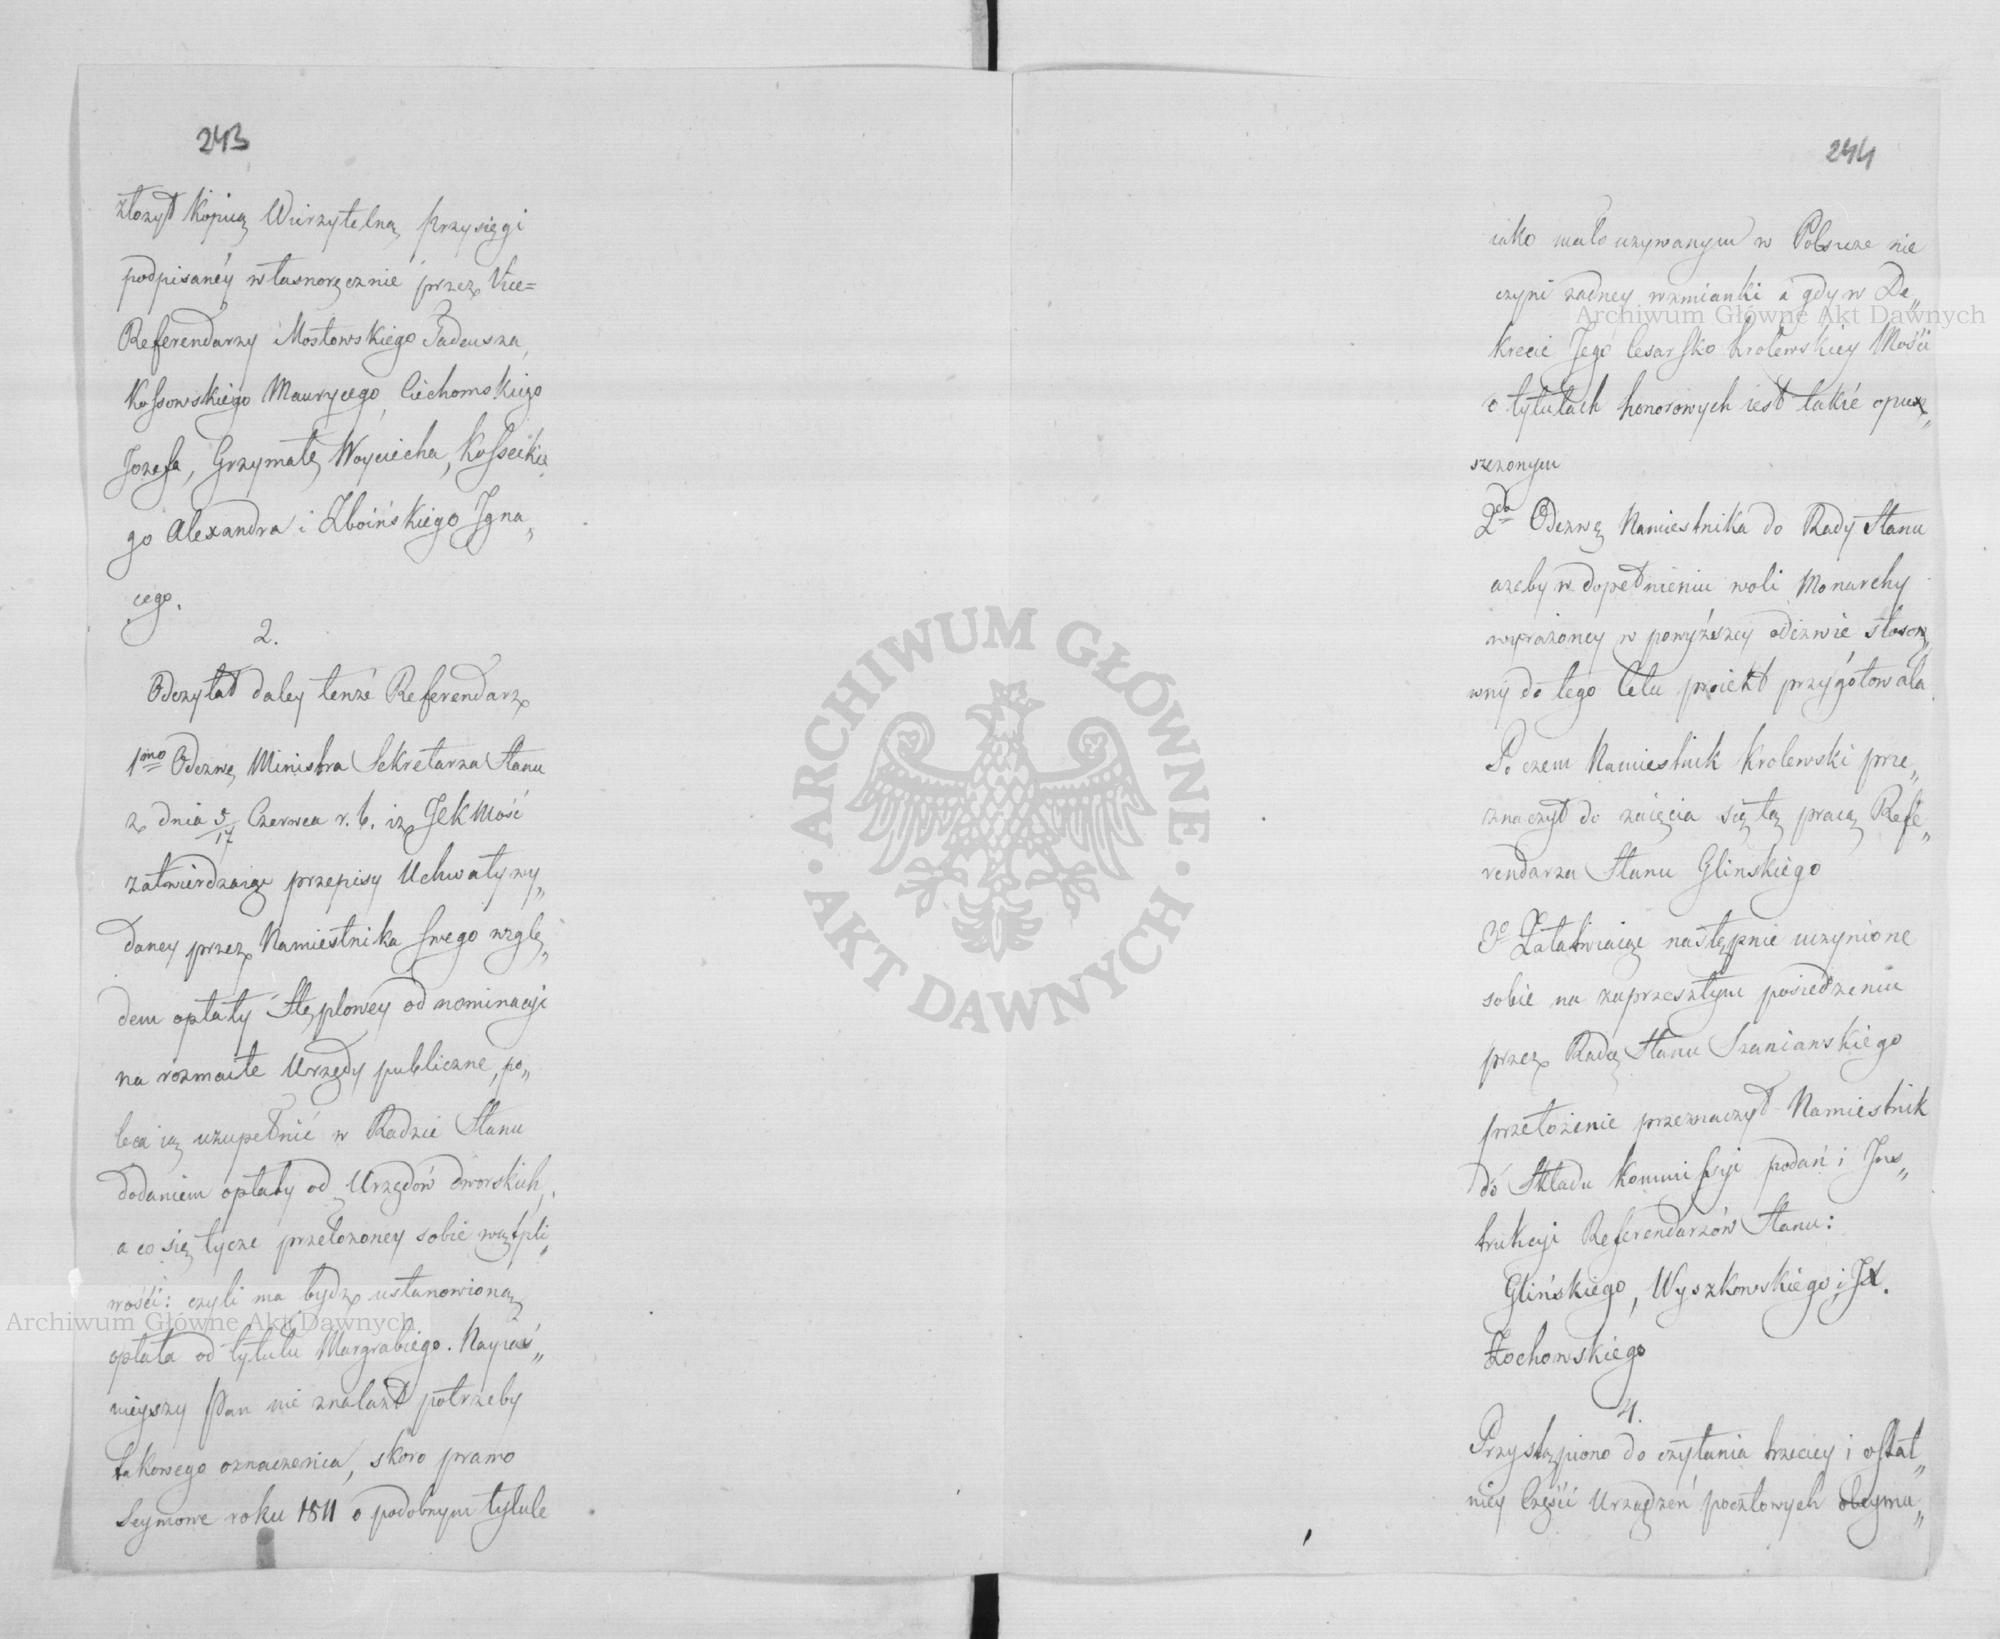 243
złożył kopiią Wierzytelną przysięgi
podpisanéy własnoręcznie przez Vice=
Referendarzy Mostowskiego Tadeusza,
Kossowskiego Maurycego, Ciechomskiego
Jozefa, Grzymałę Woyciecha, Kosseckie
go Alexandra i Zboińskiego Igna„
cego.
2.
Odczytał daley tenże Referendarz
1mo Odezwę Ministra Sekretarza Stanu
z dnia 5/17 Czerwca r. b. iż JCKMość
zatwierdzaiąc przepisy Uchwały wy„
daney przez Namiestnika swego wzglę„
dem opłaty Stęplowey od nominacyi
na rozmaite Urzędy publiczne, po„
leca ią uzupełnić w Radzie Stanu
dodaniem opłaty od Urzędów dworskich,
a co się tycze przełożoney sobie wątpli„
wości: czyli ma bydz ustanowioną
opłata od tytułu Margrabiego. Nayiaś„
nieyszy Pan nie znalazł potrzeby
takowego oznaczenia, skoro prawo
Seymowe roku 1811 o podobnym tytule
244
iako mało używanym w Polszcze nie
czyni żadney wzmianki a gdy w De„
krecie Jego Cesarsko Krolewskiey Mości
o tytułach honorowych iest takie opu„
szczonym
2do Odezwę Namiestnika do Rady Stanu
ażeby w dopełnieniu woli Monarchy
wyrażoney w powyższey odezwie stoso„
wny do tego Celu proiekt przygotowała
Po czem Namiestnik Krolewski prze„
znaczył do zaięcia się tą pracą Refe„
rendarza Stanu Glinskiego
3o Załatwiaiąc następnie uczynione
sobie na zaprzeszłym posiedzeniu
przez Radcę Stanu Szaniawskiego
przełożenie przeznaczył Namiestnik
do Składu Kommissyi podań i Ins„
trukcyi Referendarzów Stanu:
Glińskiego, Wyszkowskiego i JX.
Żochowskiego
4.
Przystąpiono do czytania trzeciey i ostat„
niey Części Urządzeń pocztowych obeymu„
Archiwum Główne Akt Dawnych
Archiwum Główne Akt Dawnych
ARCHIWUM GŁÓWNE · AKT DAWNYCH ·